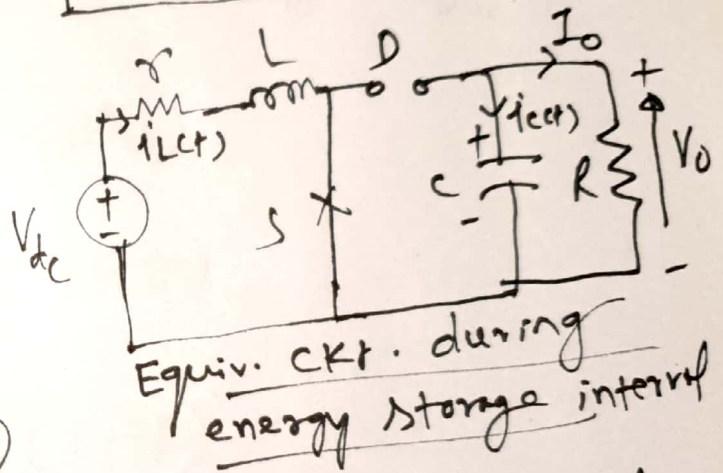 r L D I₀
iL(t)
+ ic(t) +
Vdc + - S C + - R V₀ -
Equiv. CKt. during
energy storage interval